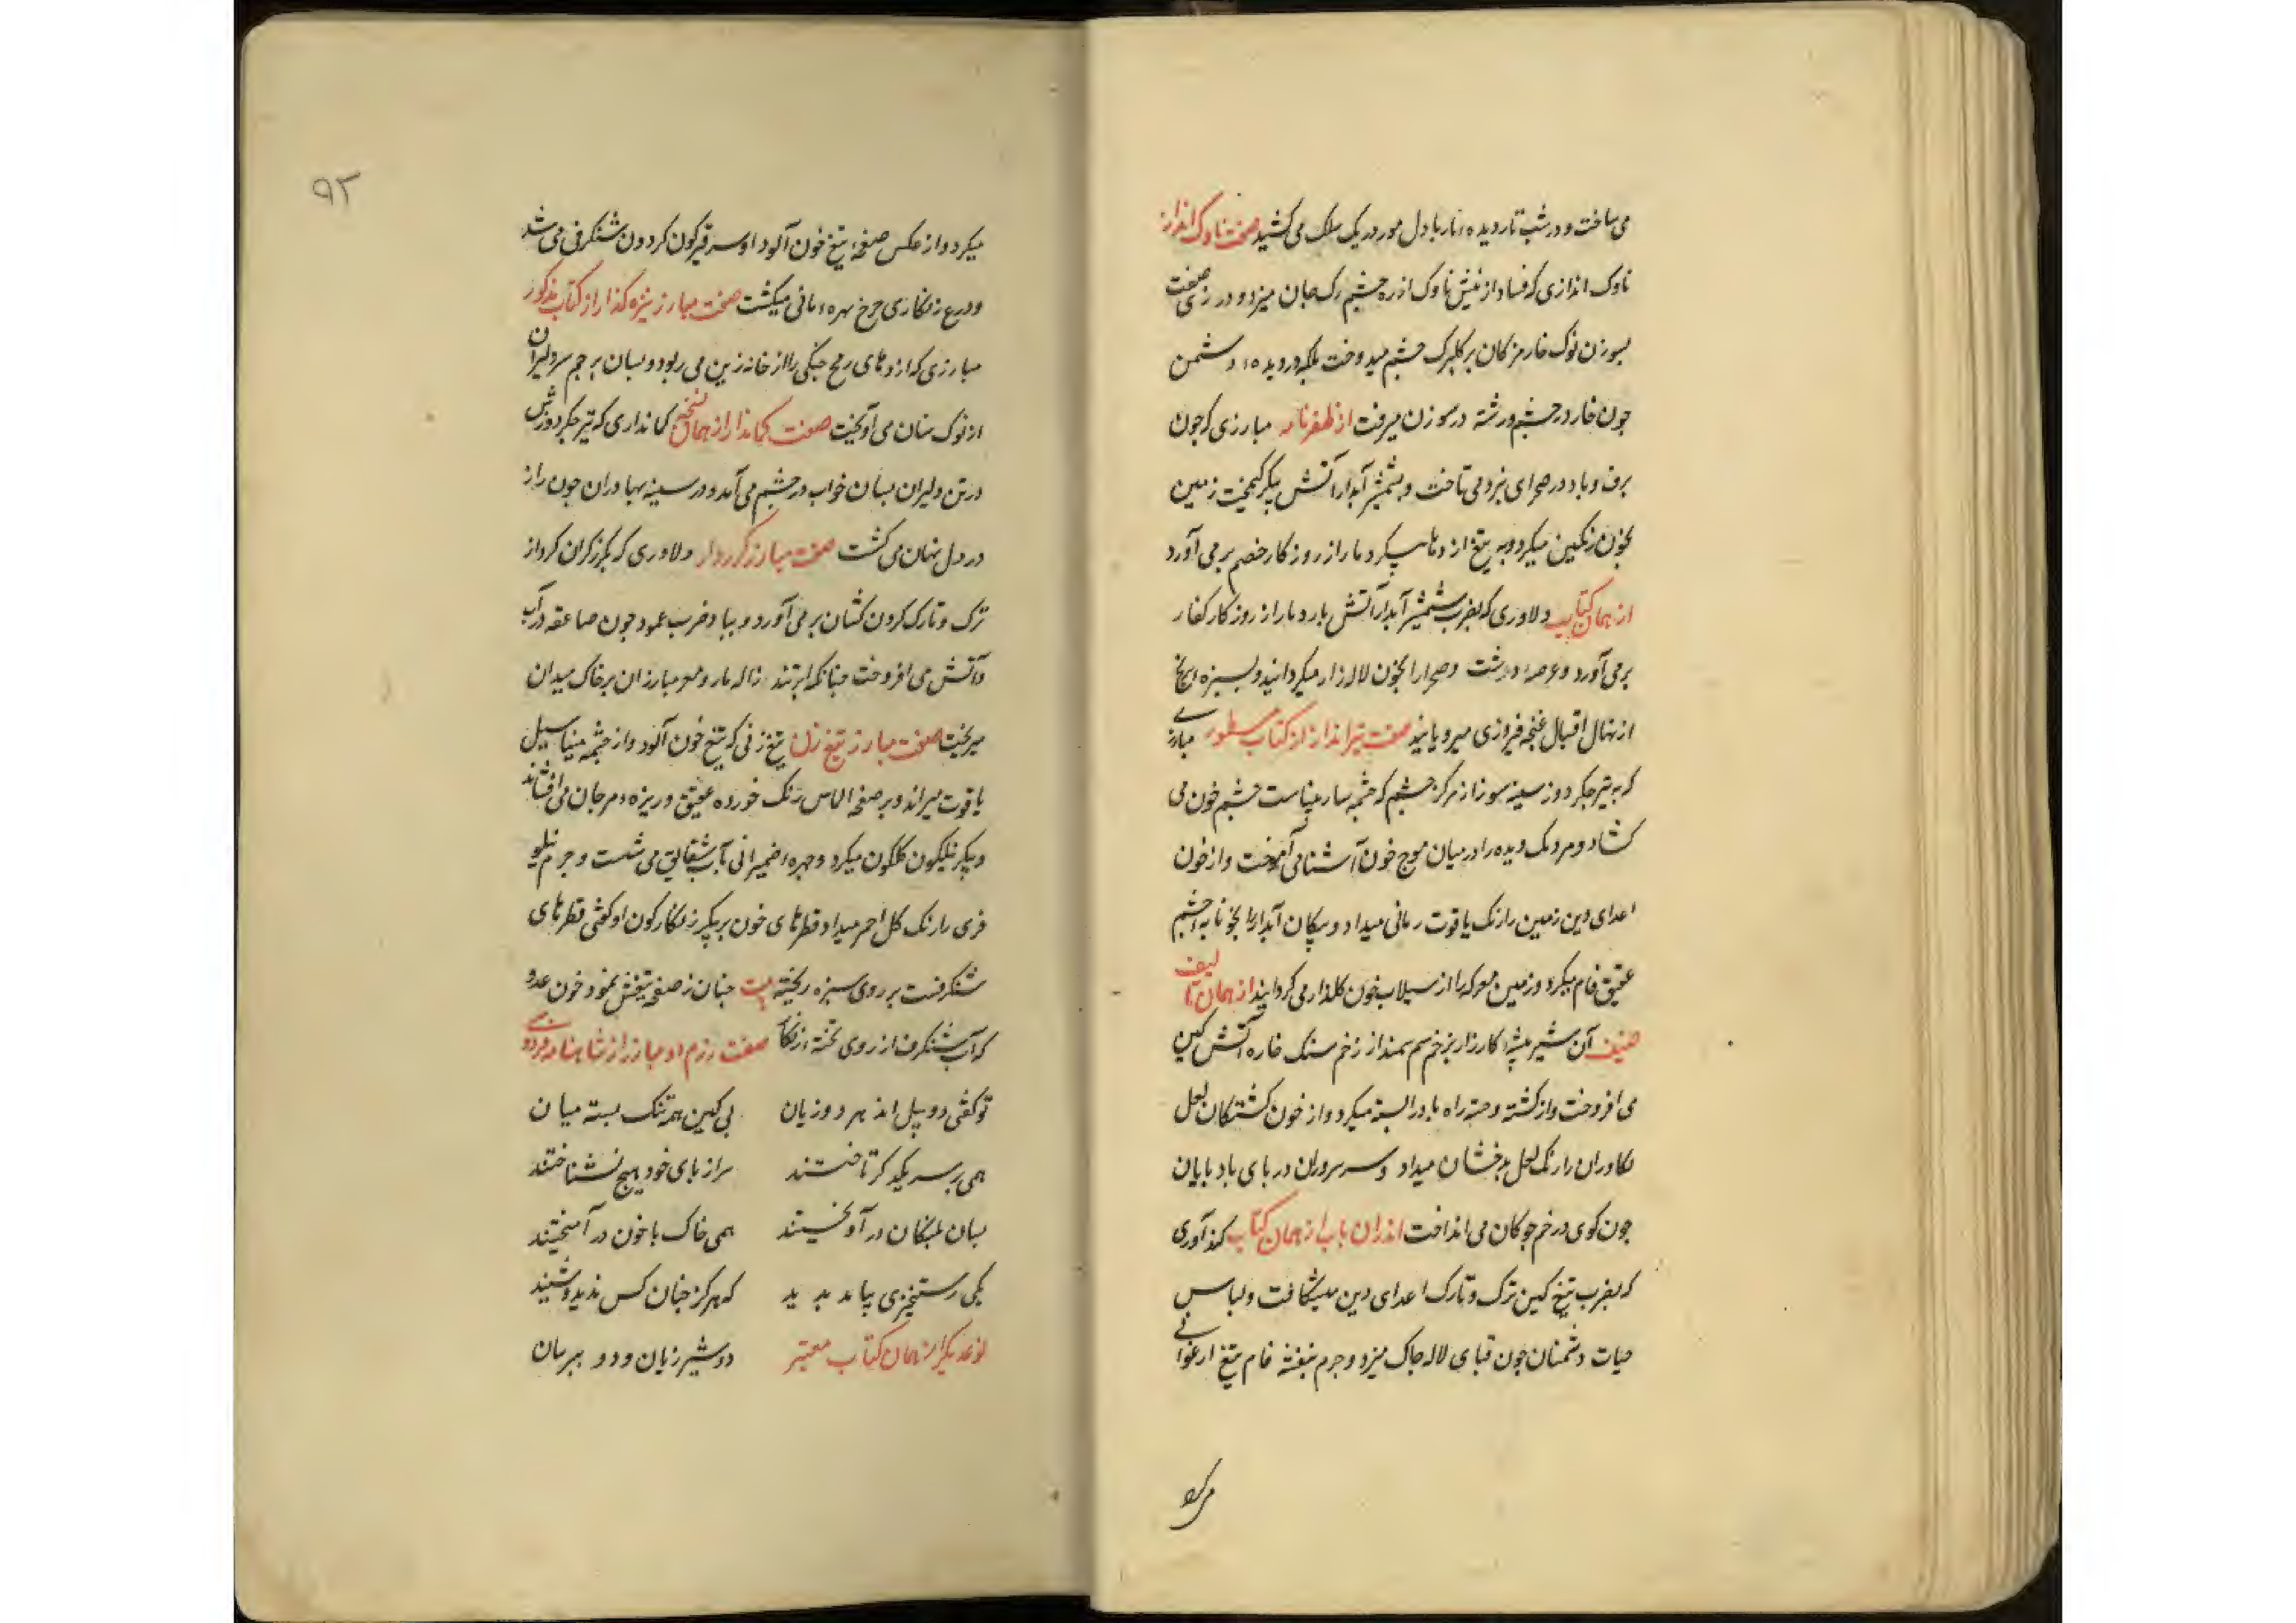 می ساخت و در شب تار دیدهٔ مار با دل مور در یک سلک می کشید صفت ناوک انداز
ناوک اندازی که فساد از نیش ناوک از ره چشم رک جان میزد و در زی صفت
بسوزن نوک خار مژکان بر کلبرک چشم میدوخت بلکه در دیدهٔ دشمن
چون خار در چشم و رشته در سوزن میرفت از ظفرنامه مبارزی که چون
برق و باد در صحرای نبرد می تاخت و بشمشیر آبدار آتش پیکر زمین
بخون رنکین میکرد و به تیغ اژدها پیکر دمار از روزکار خصم بر می آورد
از همان کتاب دلاوری که بضرب شمشیر آبدار آتش بار دمار از روزکار کفار
بر می آورد و عرصهٔ دشت و صحرا را بخون لاله زار میکردانید و بسبزهٔ تیغ
از نهال اقبال غنچه فیروزی میرویانید صفت تیرانداز از کتاب مسطور مبارزی
که به تیر جکر دوز سینه سوز از مرکز چشم که چشمه سار بیناست چشمه خون می
کشاد و مردمک دیده را در میان موج خون آشنا می آموخت و از خون
اعدای دین زمین را رنک یاقوت رمانی میداد و پیکان آبدار را بخونابه چشم
عقیق فام میکرد و زمین معرکه را از سیلاب خون کلذار می کردانید از همان تالیف
صنیف آن شیر بیشهٔ کارزار بزخم سم سمند از زخم سنک خاره آتش کین
می افروخت و از کشته و خسته راه باد را بسته میکرد و از خون کشتکان لعل
تکاوران را رنک لعل بدخشان میداد و سر سروران در پای باد پایان
چون کوی در خم چوکان می انداخت اندران باب از همان کتاب کندآوری
که بضرب تیغ کین ترک و تارک اعدای دین میشکافت و لباس
حیات دشمنان چون قبای لاله چاک میزد و جرم بنفشه فام تیغ ارغوانی
میکرد
۹۲
میکرد و از عکس صفحهٔ تیغ خون آلود او سر قیرکون کردون شنکرفی می شد
و درع زنکاری چرخ بهرهٔ مانی میکشت صفت مبارز نیزه کذار از کتاب مذکور
مبارزی که اژدهای رمح جنکی را از خانه زین می ربود و بسان پرچم سر دلیران
از نوک سنان می آویخت صفت کماندار از همان نسخه کمانداری که تیر جکر دوزش
در تن دلیران بسان خواب در چشم می آمد و در سینه بهادران چون راز
در دل نهان می کشت صفت مبارز کرزدار دلاوری که بکرز کران کرد از
ترک و تارک کردن کشان بر می آورد و بباد ضرب عمود چون صاعقه در آب
و آتش می افروخت چنانکه ابر تند ژاله مار و مور مبارزان بر خاک میدان
میریخت صفت مبارز تیغ زن تیغ زنی که تیغ خون آلود و از چشمه مینا سیل
یاقوت میراند و بر صفحهٔ الماس زنک خورده عقیق و ریزهٔ مرجان می افشاند
و پیکر نیلکون کلکون میکرد و چهرهٔ ضمیرانی بآب شقایق می شست و جرم نیلو
فری را رنک کل احمر میداد و قطرهای خون بر پیکر زنکارکون او کفتی قطرهای
شنکرفست بر روی سبزه ریخته بیت چنان ز صفحه تیغش نمود خون عدو
که آب شنکرف از روی تختهٔ زنکار صفت رزم دو مبارز از شاهنامه فردوسی
تو کفتی دو پیل اند هر دو ژیان پی کین همه تنک بسته میان
همی بر سر یکدکر تاختند سر از پای خود هیچ نشناختند
بسان پلنکان در آویختند همی خاک با خون در آمیختند
یکی رستخیزی بیامد پدید که هرکز چنان کس ندید و شنید
نوع دیکر از همان کتاب معتبر دو شیر ژیان و دو ببر بیان